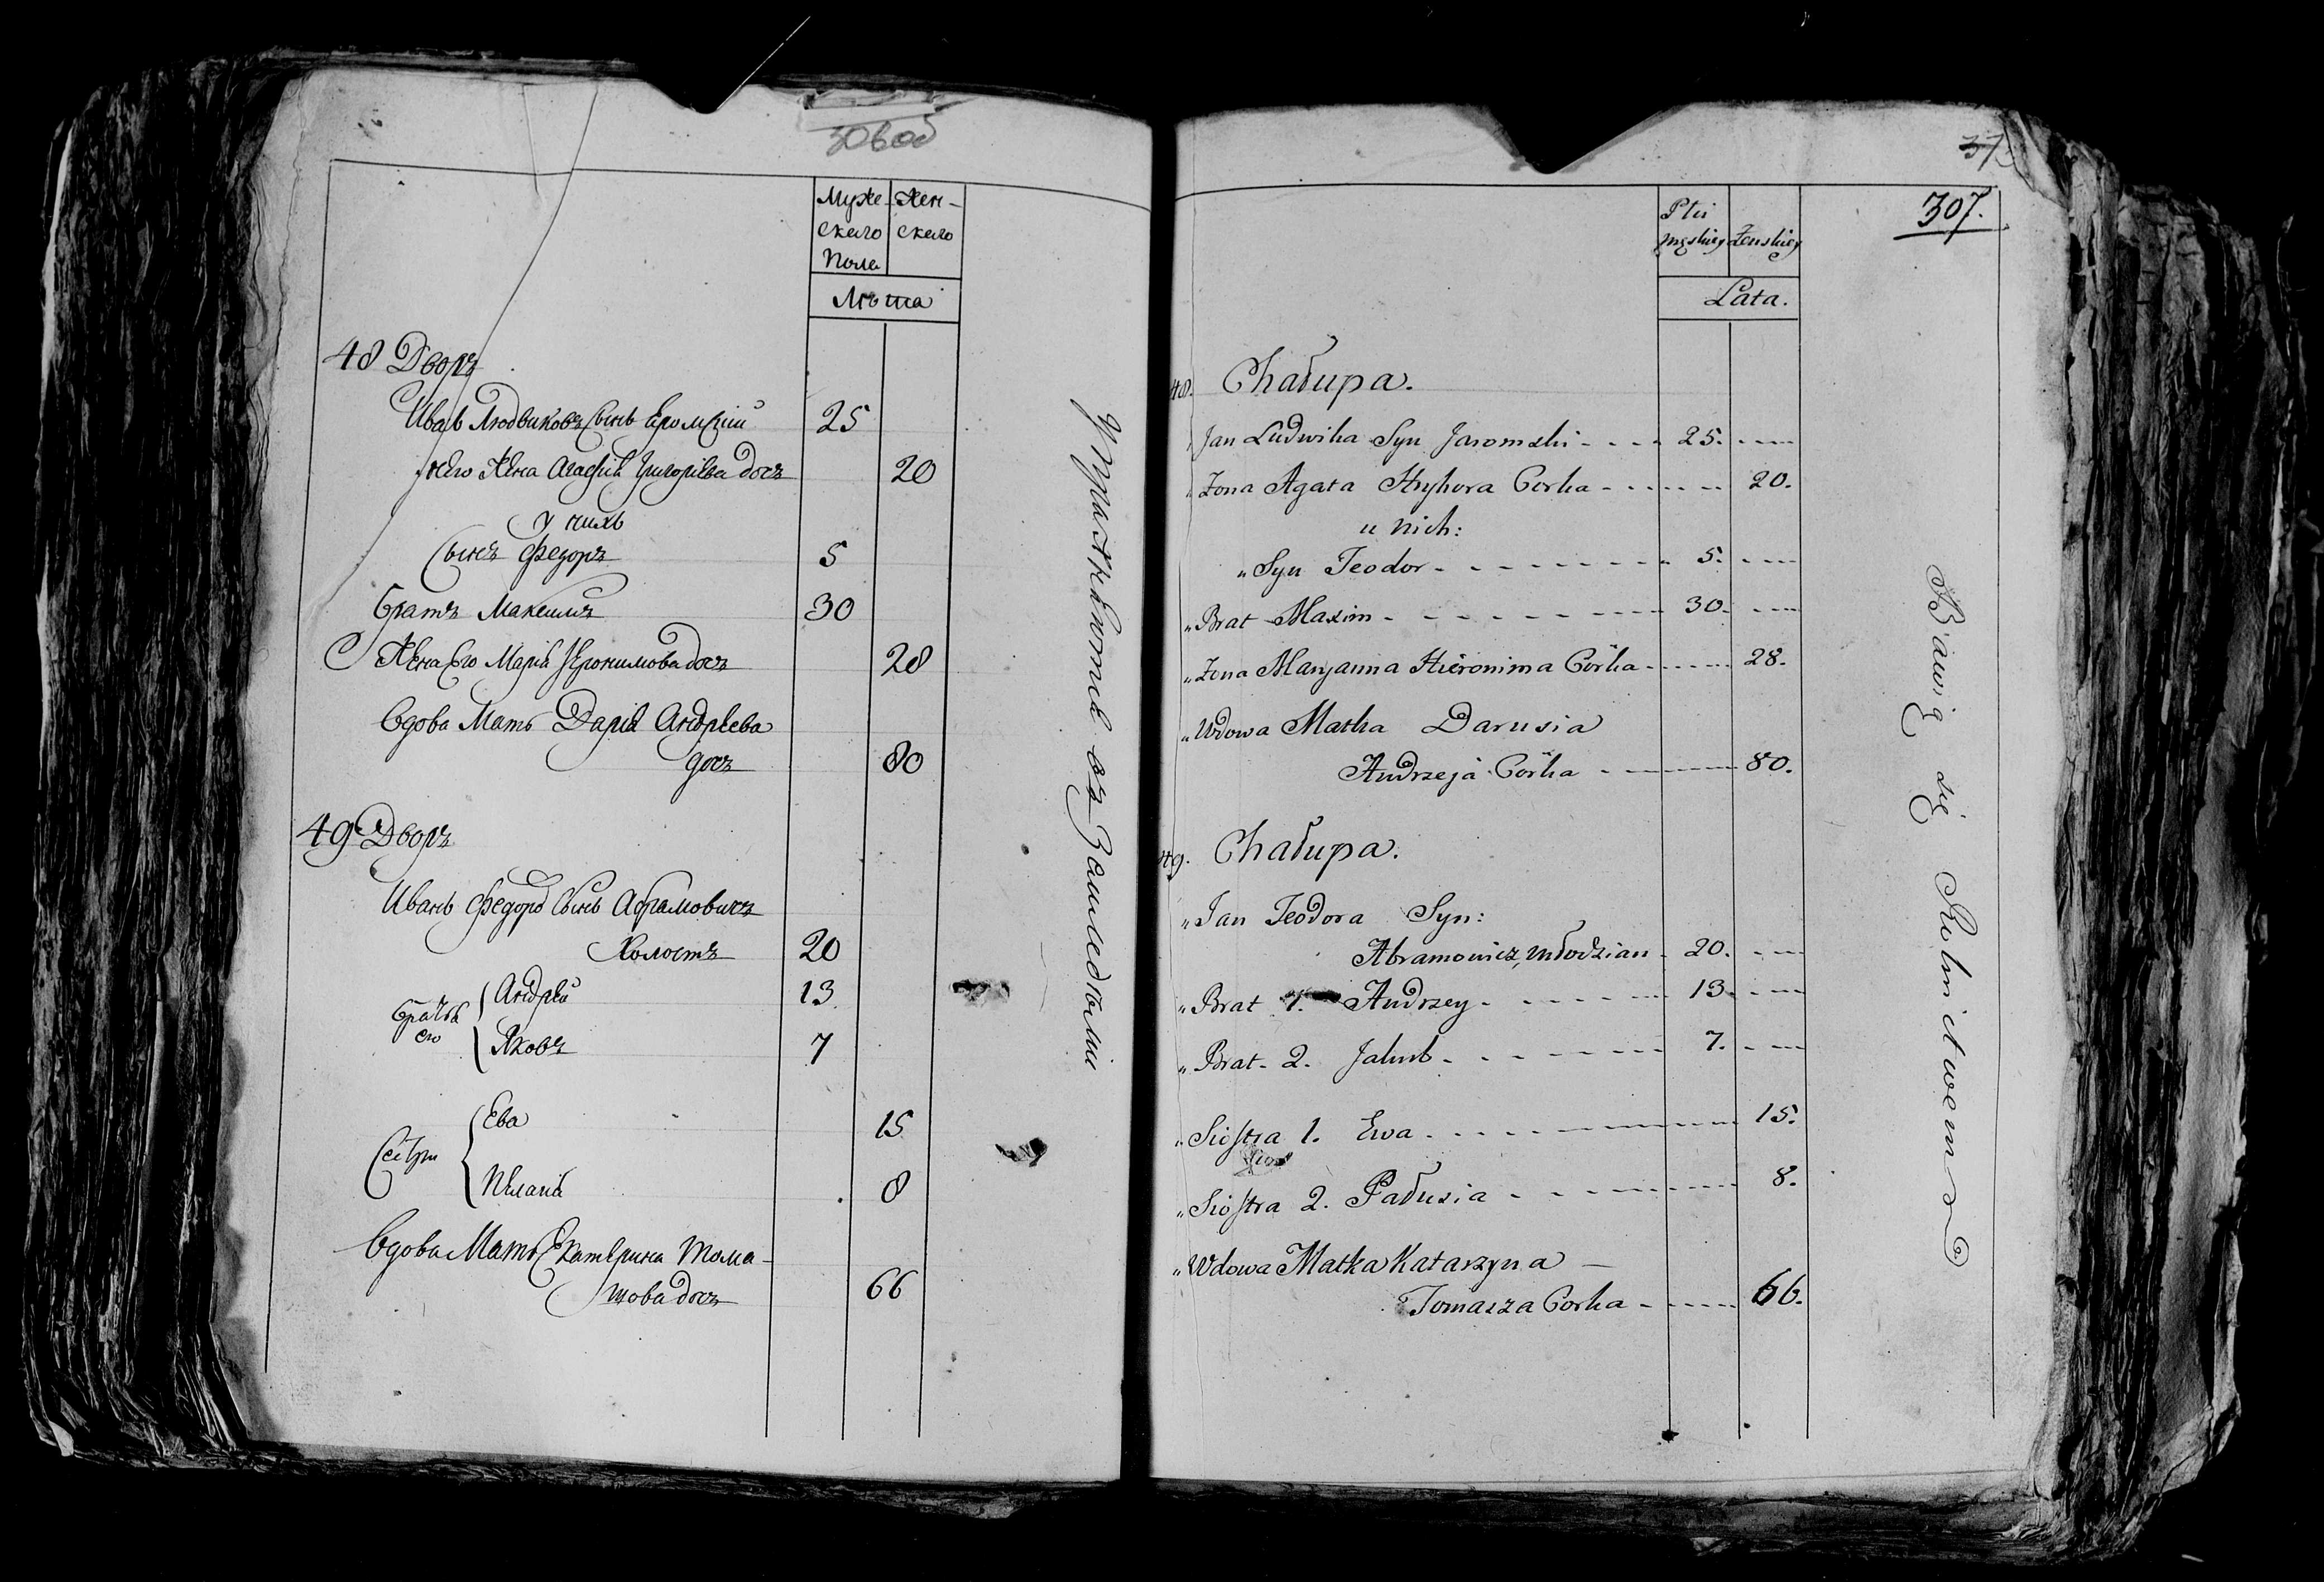 306об
Муже-
скаго
Пола
Жен-
скаго
Лѣта
48 Дворъ
Иванъ Людвиковъ Сынъ Яромскій 25
Его Жена Агафія Григоріева дочь 20
У нихъ
Сынъ Федоръ 5
Братъ Максимъ 30
Жена Его Марія Іеронимова дочь 28
Вдова Мать Дарія Андреева
дочь 80
49 Дворъ
Иванъ Федоръ Сынъ Абрамовичъ
Холостъ 20
Братья
его
Андрей 13
Яковъ 7
Сестры
Ева 15
Пелагія 8
Вдова Мать Екатерина Тома-
шова дочь 66
Упражняются въ Земледеліи
37
307.
Płci
męskiey
Żenskiey
Lata.
48. Chałupa.
Jan Ludwika Syn Jaromski 25.
" Żona Agata Hryhora Corka 20.
u nich:
" Syn Teodor 5.
" Brat Maxim 30.
" Żona Maryanna Hieronima Córka 28.
" Wdowa Matka Darusia
Andrzeja Córka 80.
49. Chałupa.
" Jan Teodora Syn:
Abramowicz, młodzian 20.
" Brat 1. Andrzey 13.
" Brat 2. Jakub 7.
" Siostra 1. Ewa 15.
" Siostra 2. Pałusia 8.
" Wdowa Matka Katarzyna
Tomasza Corka 66.
Bawią się Rolnictwem